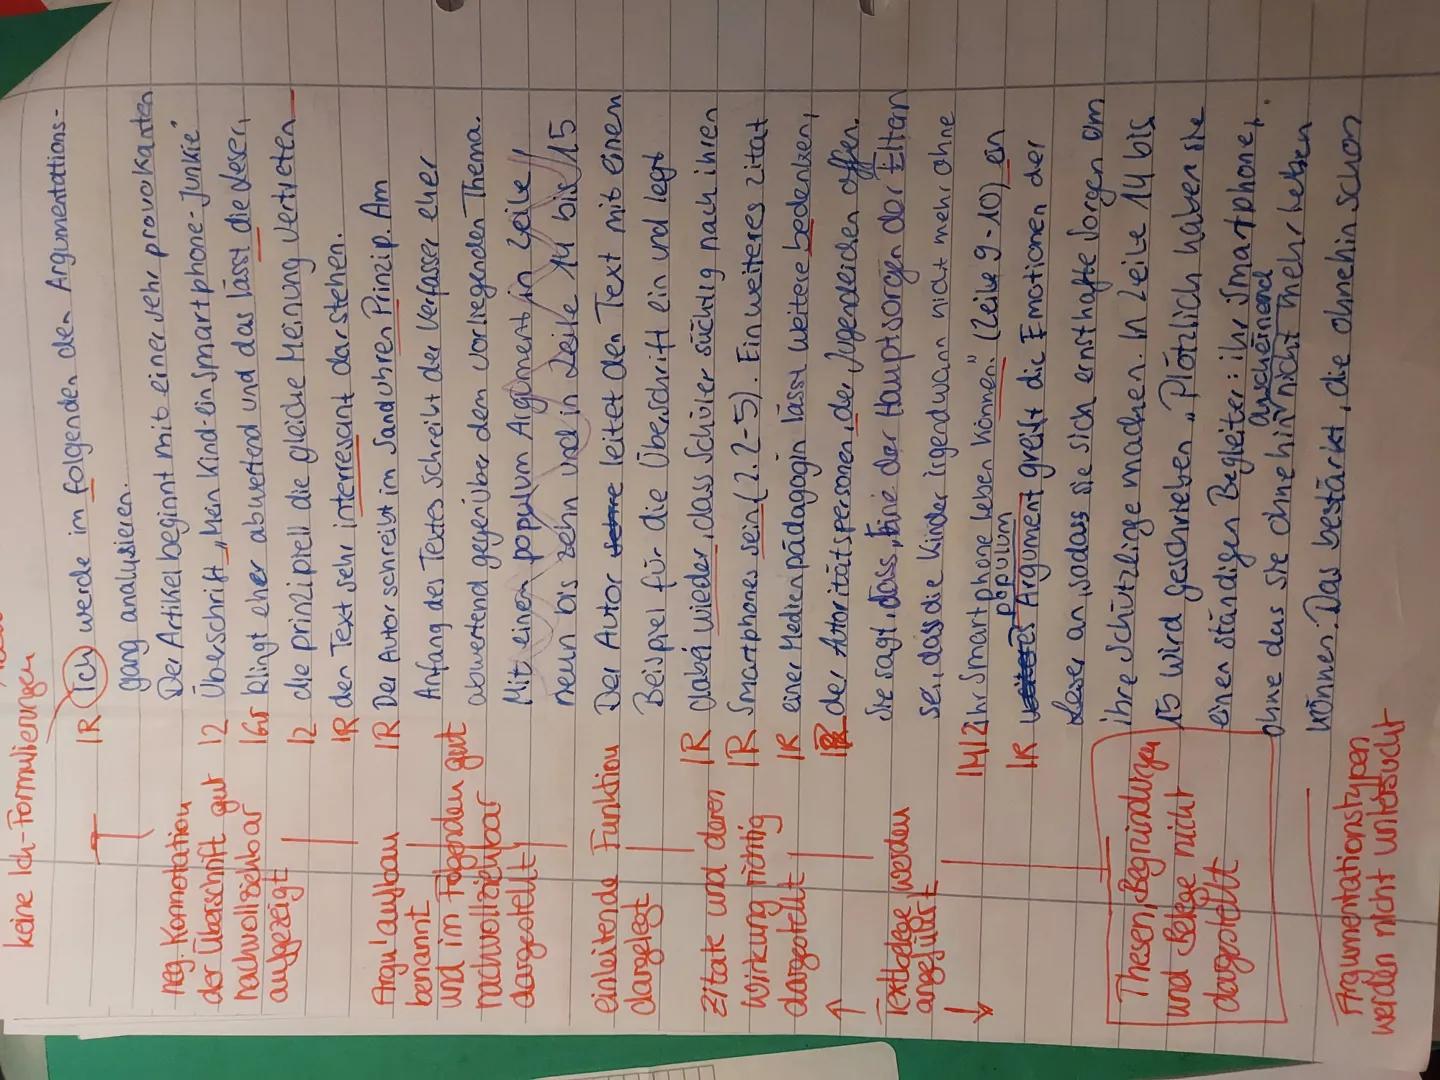 keine Ich-Formulierungen
Ich werde im folgenden den Argumentations-
gang analysieren.
Der Artikel beginnt mit einer sehr provokanten
Überschrift „Mein Kind-ein Smartphone-Junkie"
klingt eher abwertend und das lässt die Leser,
die prinzipiell die gleiche Meinung vertreten
den Text sehr interresant darstehen.
Der Autor schreibt im Sanduhren Prinzip. Am
Anfang des Textes schreibt der Verfasser eher
abwertend gegenüber dem vorliegenden Thema.
Mit einen populum Argument in Zeile
neun bis zehn und in Zeile 14 bis 15
Der Autor leitet den Text mit einem
Beispiel für die Überschrift ein und legt
wieder, dass Schüler süchtig nach ihren
Smartphones sein (2. 2-5). Ein weiteres Zitat
einer Medienpädagogin lässt weitere bedenken,
der Autoritätspersonen, der Jugendlichen offen.
Sie sagt, dass, eine der Hauptsorgen der Eltern
sei, dass die Kinder irgendwann nicht mehr ohne
ihr Smartphone leben können." (Zeile 9-10) ein
populum
Argument greift die Emotionen der
Leser an, sodass sie sich ernsthafte Sorgen om
ihre Schützlinge machen. In Zeile 14 bis
15 wird geschrieben „Plötzlich haben sie
einen ständigen Begleiter: ihr Smartphone,
anscheinend
ohne das sie ohnehin nicht mehr leben
können. Das bestärkt, die ohnehin schon
1R
12
1Gr
12
1R
1R
1R
1R
1R
1R
1M12
1R
neg. Konnotation
der Überschrift gut
nachvollziehbar
aufgezeigt
Argu'aufbau
benannt
und im Folgenden gut
nachvollziehbar
dargestellt
einleitende Funktion
dargelegt
Zitate und deren
Wirkung richtig
dargestellt
Textbelege werden
angeführt
Thesen, Begründungen
und Belege nicht
dargestellt
Argumentationstypen
werden nicht untersucht